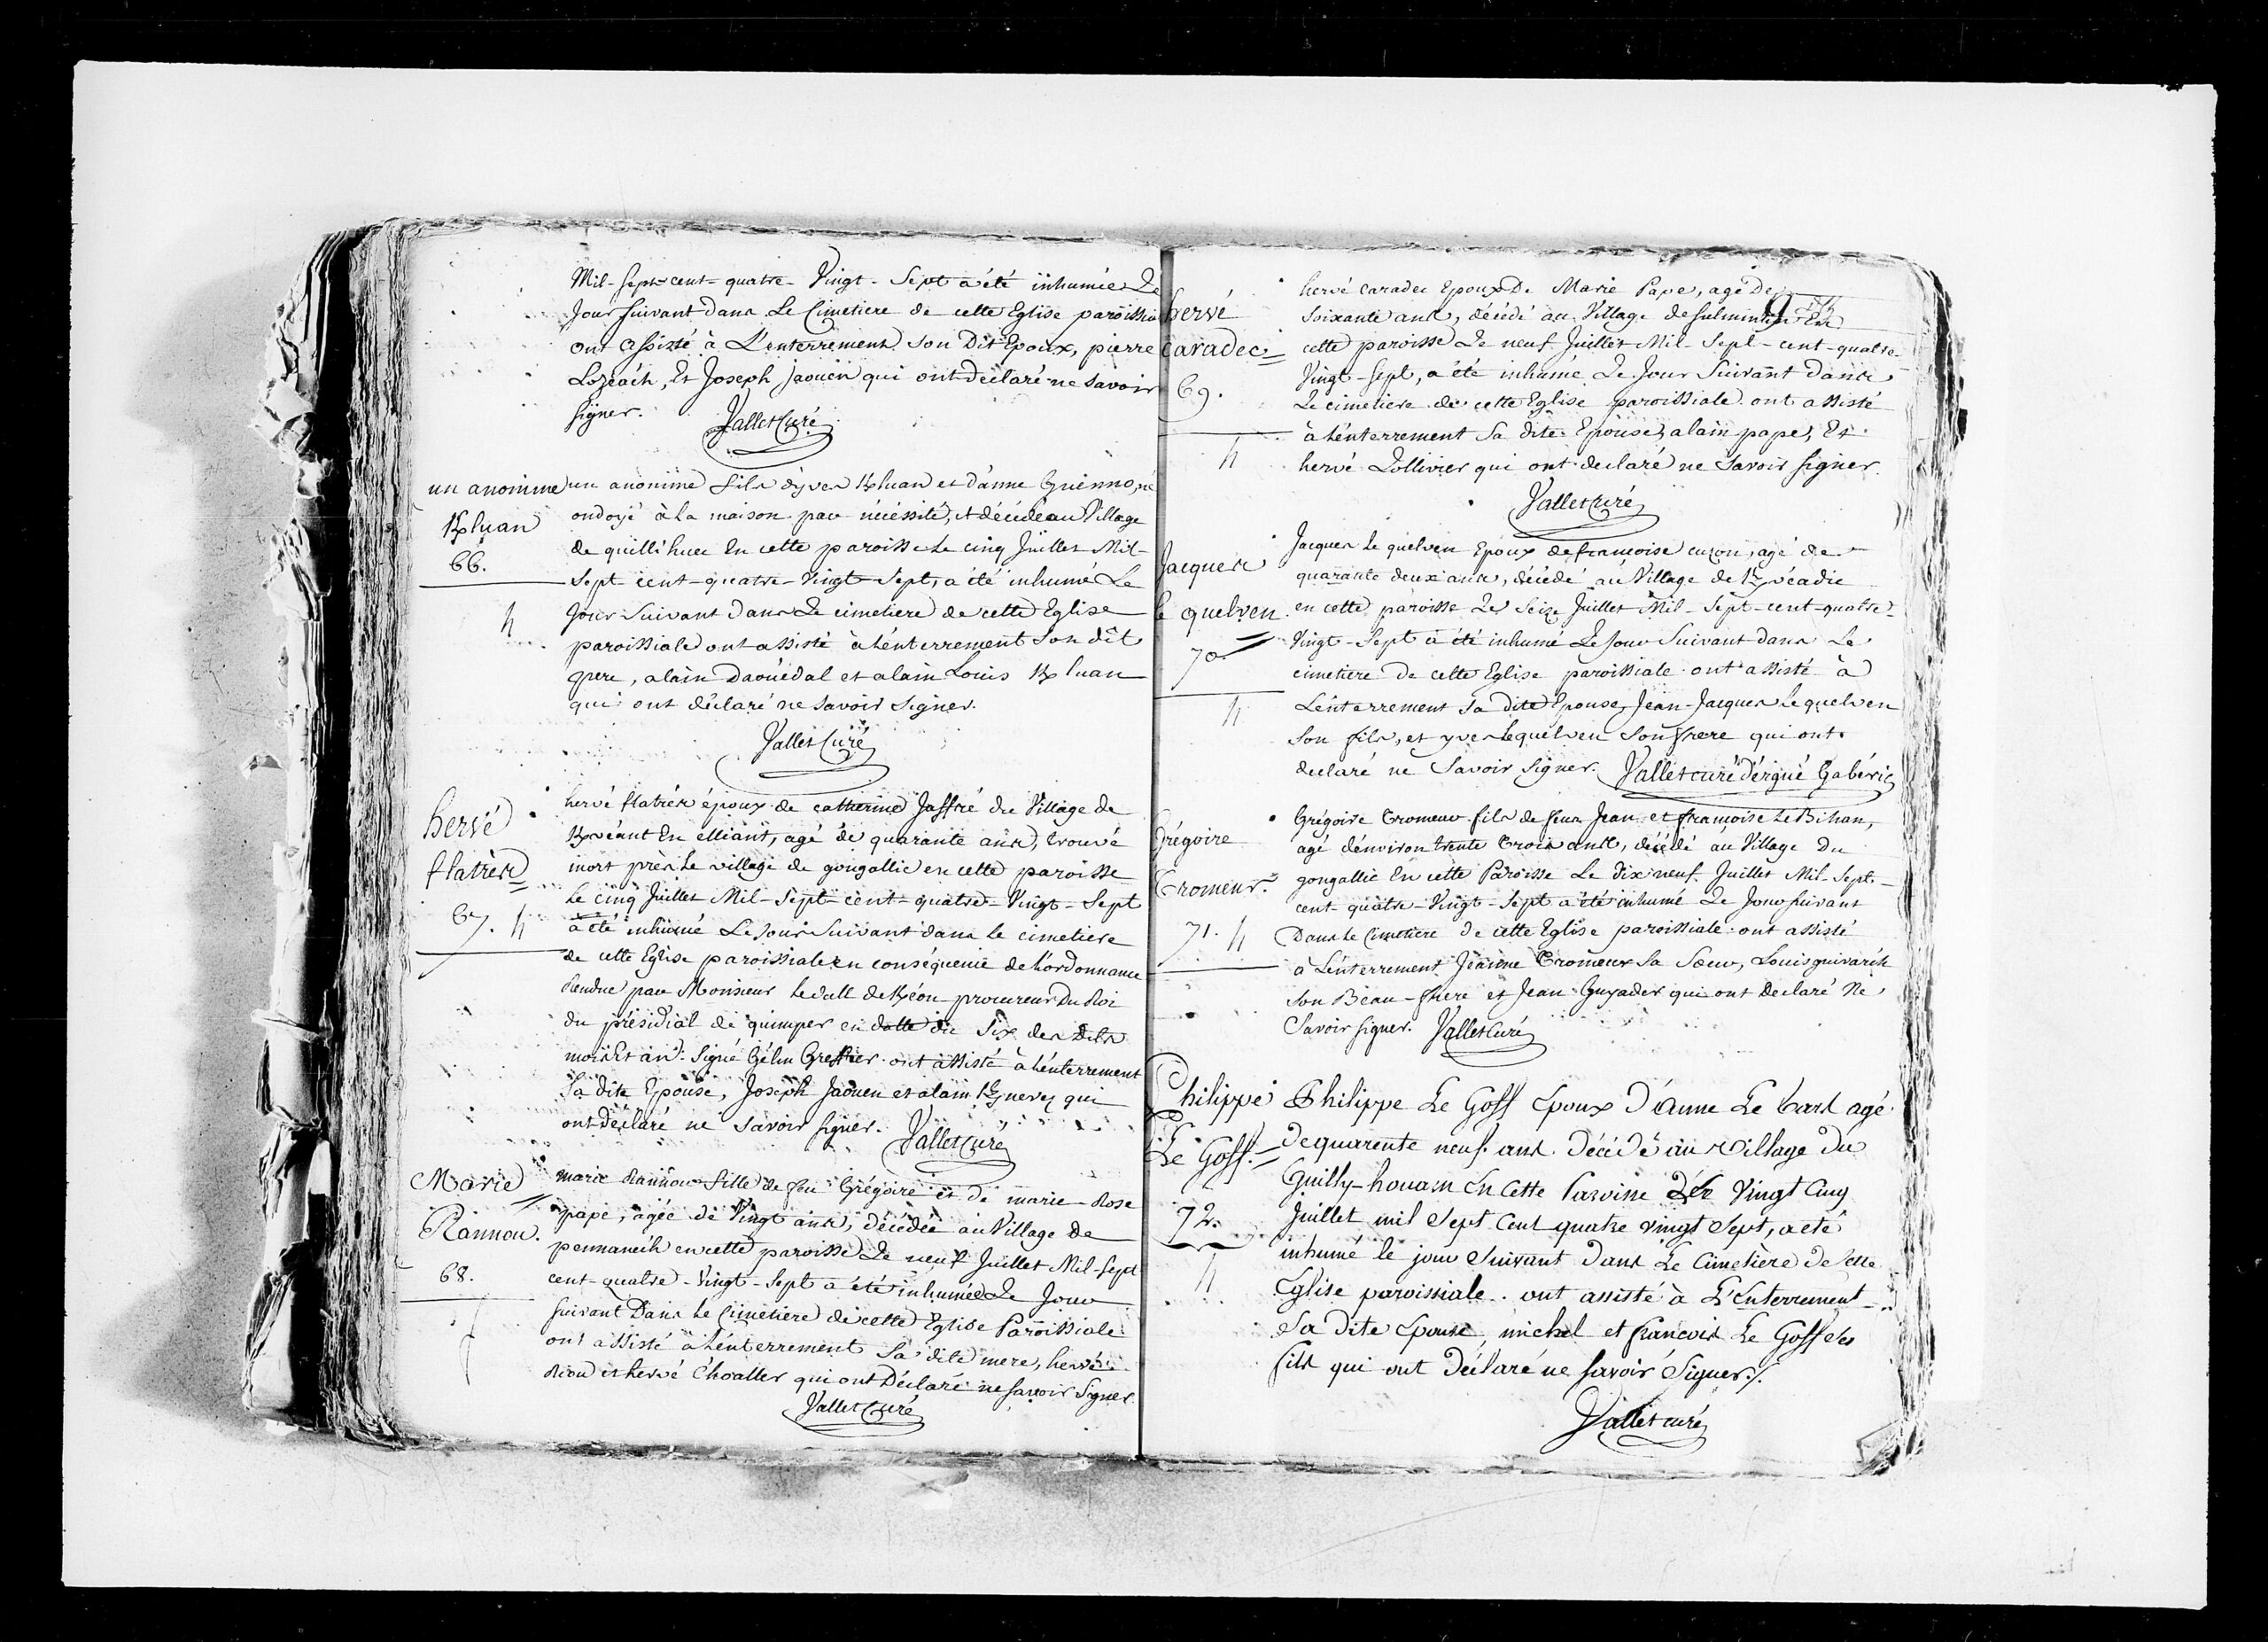 Mil-Sept-cent-quatre-Vingt-Sept a été inhumée Le
Jour suivant dans Le Cimetiere de cette Eglise paroissia
ont assisté à L'enterrement son Dit Epoux, pierre
Lozéach, Et Joseph jaouen qui ont déclaré ne savoir
signer. Vallet Curé
un anonime
Kluan
66.
h
un anonime fils d'yves Kluan et d'anne Guenno, né
ondoyé à la maison par nécéssité, et décédé au Village
de quillihuec En cette paroisse Le cinq Juillet Mil-
Sept-cent-quatre-Vingt-Sept, a été inhumé Le
Jour Suivant dans Le cimetiere de cette Eglise
paroissiale ont assisté à L'énterrement Son dit
pere, alain Daouëdal et alain Louis Kluan
qui ont déclaré ne savoir signer.
Vallet Curé
hervé
flatrès
67. h
hervé flatrés époux de catherine Jaffré du Village de
Kvéant En elliant, agé de quarante ans, trouvé
mort près Le village de gougallic en cette paroisse
Le cinq Juillet Mil-Sept-cent-quatre-Vingt-Sept
a été inhumé Le Jour Suivant dans le cimetiere
de cette Eglise paroissiale en conséquence de L'ordonnance
Rendue par Monsieur Le dall de Kéon procureur Du Roi
du présidial de quimper en datte du Six des dits
mois Et an. Signé Gélin Greffier. ont assisté à L'énterrement
Sa dite Epouse, Joseph Jaouen et alain Kguevey qui
ont déclaré ne savoir signer. Vallet curé
Marie
Rannou.
68.
marie Rannou fille de feu Grégoire et de marie-Rose
pape, agée de Vingt ans, décédée au Village de
pennanech en cette paroisse Le neuf Juillet Mil-Sept
cent-quatre-Vingt-Sept a été inhumée Le Jour
suivant Dans Le Cimetiere de cette Eglise Paroissiale
ont assisté à L'énterrement Sa dite mere, hervé
Riou et hervé Choaller qui ont Déclaré ne savoir Signer.
Vallet Curé
hervé
Caradec
69.
h
hervé Caradec Epoux De Marie Pape, agé De
Soixante ans, décédé au Village de En
cette paroisse Le neuf Juillet Mil-Sept-cent-quatre-
Vingt-Sept, a été inhumé Le Jour Suivant dans
Le cimetiere de cette Eglise paroissiale ont assisté
à L'énterrement Sa dite Epouse, alain pape, Et
hervé Lollivier qui ont declaré ne Savoir signer.
Vallet curé
Jacques
le quelven
70.
h
Jacques Le quelven Epoux de francoise cuzon, agé de
quarante deux ans, décédé au Village de Kvéadic
en cette paroisse Le Seize Juillet Mil-Sept-cent-quatre-
Vingt-Sept a été inhumé Le Jour Suivant dans Le
cimetiere De cette Eglise paroissiale ont assisté à
L'énterrement sa dite Epouse, Jean-Jacques Lequelven
son fils, et yves Lequelven Son frere qui ont
declaré ne Savoir signer. Vallet curé d'érgué Gabéric
Grégoire
Cromeur.
71. h
Grégoire Cromeur fils de feus Jean et francoise Le Bihan,
agé d'énviron trente trois ans, décédé au Village Du
gougallic En cette Paroisse Le Dix neuf Juillet Mil-Sept-
cent-quatre-Vingt-Sept a été inhumé Le Jour suivant
Dans Le Cimetiere de cette Eglise paroissiale ont assisté
à L'énterrement Jeanne Cromeur Sa Soeur, Louis guivarch
son Beau-frere et Jean Guyader qui ont Declaré Ne
Savoir signer. Vallet Curé
Philippe
Le Goff.
72.
h
Philippe Le Goff Epoux D'anne Le bard agé
de quarente neuf ans. Décédé au Village du
Quilly-houarn En Cette Paroisse Le Vingt Cinq
Juillet mil Sept Cent quatre vingt Sept, a eté
inhumé le jour Suivant Dans Le Cimetière De Cette
Eglise paroissiale. ont assisté à L'Enterrement
Sa Dite Epouse, michel et francois Le Goff Ses
fils qui ont Déclaré ne savoir Signer./.
Vallet curé